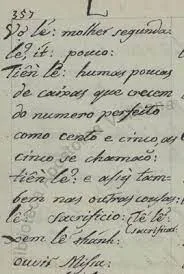 357 L
Vợ lẽ: molher segunda.
lẽ, it: pouco:
Tiền lẽ: humas poucas
de caixas que crecem
do numero perfeito
como cento e cinco, as
cinco se chamaõ:
tiền lẽ: e assy tam-
bem nas outras cousas:
lễ: Sacrificio: Tế lễ:
sacrificar:
xem lễ thánh:
ouvir Missa: